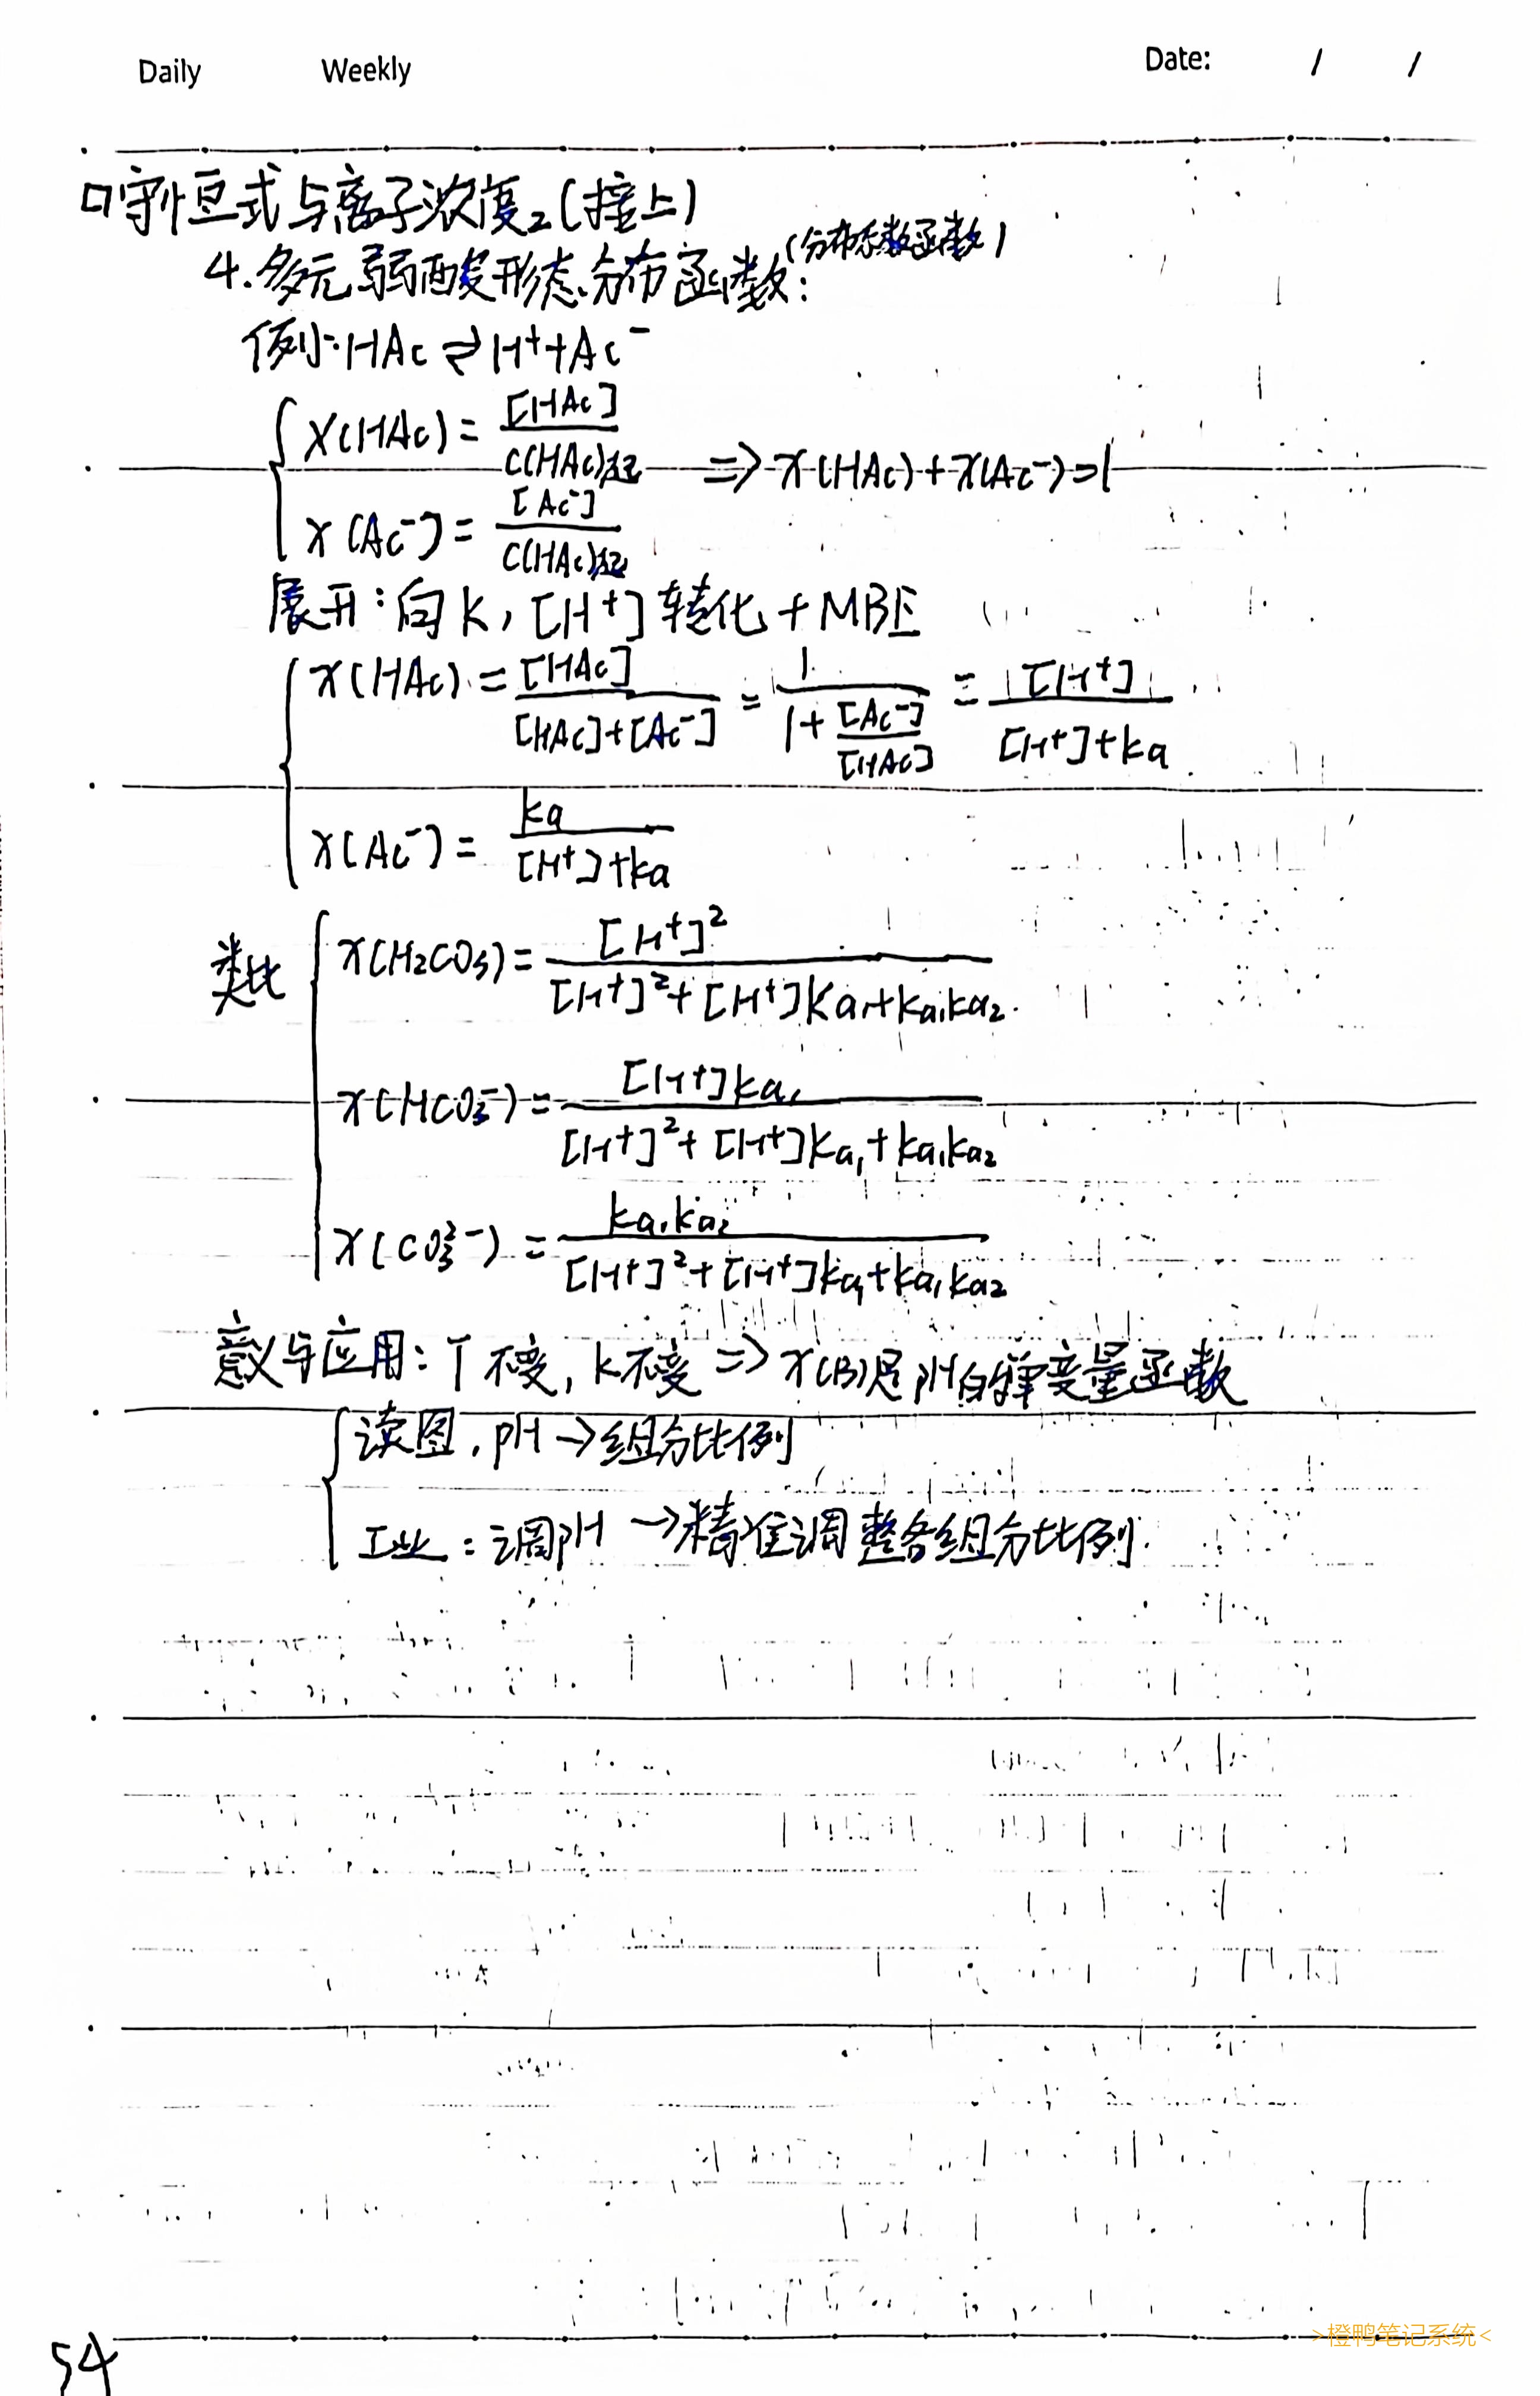 Daily Weekly Date: / /
口守恒式与离子浓度2(接上)
4.多元弱酸形态分布函数:(分布系数函数)
例: HAc ⇌ H⁺+Ac⁻
x(HAc) = [HAc] / c(HAc)总 => x(HAc) + x(Ac⁻) = 1
x(Ac⁻) = [Ac⁻] / c(HAc)总
展开:向K,[H⁺]转化 + MBE
x(HAc) = [HAc] / [HAc]+[Ac⁻] = 1 / 1+[Ac⁻]/[HAc] = [H⁺] / [H⁺]+ka
x(Ac⁻) = ka / [H⁺]+ka
类比
x(H₂CO₃) = [H⁺]² / [H⁺]²+[H⁺]Ka₁+ka₁ka₂
x(HCO₃⁻) = [H⁺]ka₁ / [H⁺]²+[H⁺]ka₁+ka₁ka₂
x(CO₃²⁻) = ka₁ka₂ / [H⁺]²+[H⁺]ka₁+ka₁ka₂
意义与应用:T不变,k不变 => x(B)是pH的单变量函数
读图,pH→组分比例
工业:调pH →精准调整各组分比例
54
>橙鸭笔记系统<